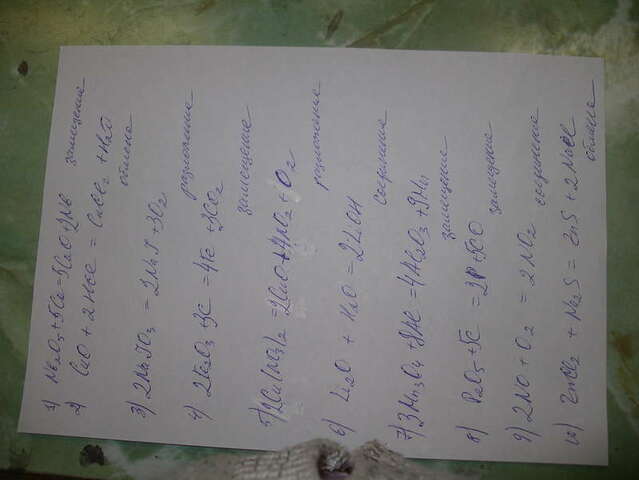 1) Nb2O5 + 5Ca = 5CaO + 2Nb замещение
2) CuO + 2HCl = CuCl2 + H2O
обмена
3) 2NaIO3 = 2NaI + 3O2
разложение
4) 2Fe2O3 + 3C = 4Fe + 3CO2
замещение
5) 2Cu(NO3)2 = 2CuO + 4NO2 + O2
разложение
6) Li2O + H2O = 2LiOH
соединение
7) 3Mn3O4 + 8Al = 4Al2O3 + 9Mn
замещение
8) P2O5 + 5C = 2P + 5CO
замещение
9) 2NO + O2 = 2NO2
соединение
10) ZnCl2 + Na2S = ZnS + 2NaCl
обмена